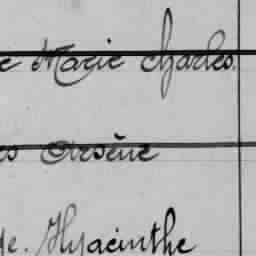 e Marie Charles.
es Arsène
ge. Hyacinthe